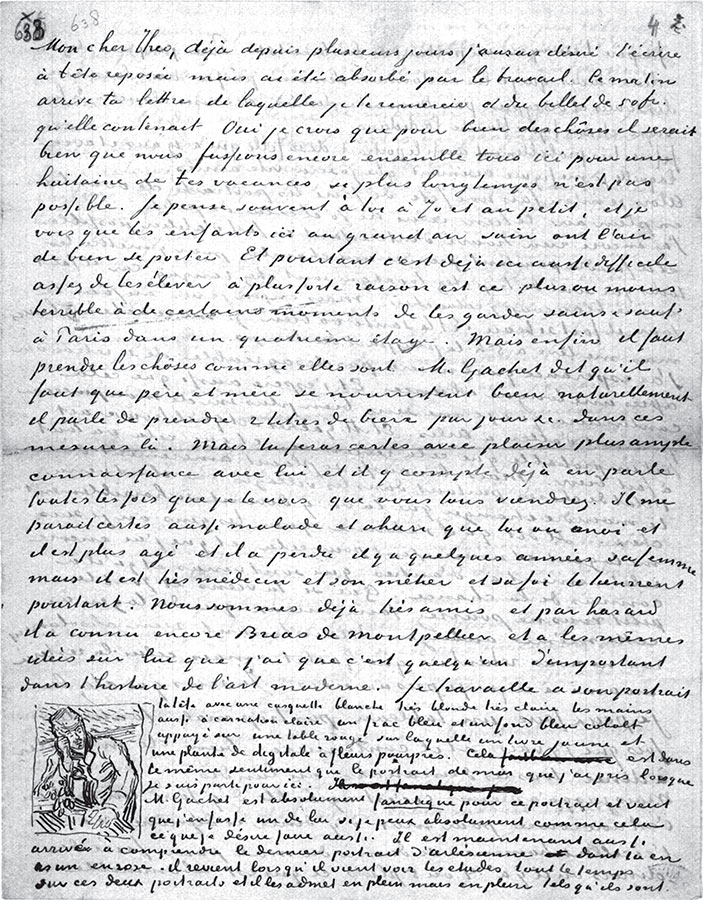 638 638 4
Mon cher Theo, déjà depuis plusieurs jours j'aurais désiré t'écrire
à tête reposée mais ai été absorbé par le travail. Ce matin
arrive ta lettre de laquelle je te remercie et du billet de 50 fr.
qu'elle contenait. Oui je crois que pour bien des chôses il serait
bien que nous fussions encore ensemble tous ici pour une
huitaine de tes vacances si plus longtemps n'est pas
possible. Je pense souvent à toi à Jo et au petit, et je
vois que les enfants ici au grand air sain ont l'air
de bien se porter. Et pourtant c'est déjà ici aussi difficile
assez de les élever à plus forte raison est ce plus ou moins
terrible à de certains moments de les garder sains & saufs
à Paris dans un quatrième étage. Mais enfin il faut
prendre les chôses comme elles sont. M. Gachet dit qu'il
faut que père et mère se nourrissent bien naturellement
il parle de prendre 2 litres de bière par jour &c. dans ces
mesures là. Mais tu feras certes avec plaisir plus ample
connaissance avec lui et il y compte déjà en parle
toutes les fois que je le vois que vous tous viendrez. Il me
parait certes aussi malade et ahuri que toi ou moi et
il est plus agé et il a perdu il y a quelques années sa femme
mais il est très médecin et son métier et sa foi le tiennent
pourtant. Nous sommes déjà très amis et par hasard
il a connu encore Brias de Montpellier et a les mêmes
idées sur lui que j'ai que c'est quelqu'un d'important
dans l'histoire de l'art moderne. Je travaille a son portrait
la tête avec une casquette blanche très blonde très claire les mains
aussi à carnation claire un frac bleu et un fond bleu cobalt
appuyé sur une table rouge sur laquelle un livre jaune et
une plante de digitale à fleurs pourpres. Cela est dans
le même sentiment que le portrait de moi que j'ai pris lorsque
je suis parti pour ici.
M. Gachet est absolument fanatique pour ce portrait et veut
que j'en fasse un de lui si je peux absolument comme cela
ce que je désire faire aussi. Il est maintenant aussi
arrivé à comprendre le dernier portrait d'arlésienne dont tu en
as un en rose. il revient lorsqu'il vient voir les etudes tout le temps
sur ces deux portraits et il les admet en plein mais en plein tels qu'ils sont.